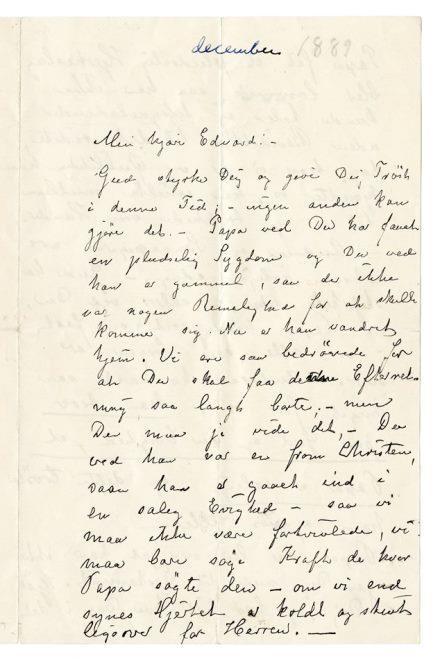 december 1889
Min kjære Edvard! -
Gud styrke Dig og give Dig Tröst
i denne Tid; - ingen anden kan
gjöre det. - Papa ved Du har faaet
en pludselig Sygdom og Du ved
han er gammel, saa der ikke
var nogen Rimelighed for at skulle
komme sig. Nu er han vandret
hjem. Vi ere saa bedrövede for
at Du skal faa denne Efterret-
ning saa langt borte; - men
Du maa jo vide det, - Du
ved han var en from Christen,
saa han er gaaet ind i
en salig Evighed - saa vi
maa ikke være fortvivlede, vi
maa bare söge Kraft der hvor
Papa sögte den - om vi end
synes Hjertet er koldt og
ligeover for Herren. -